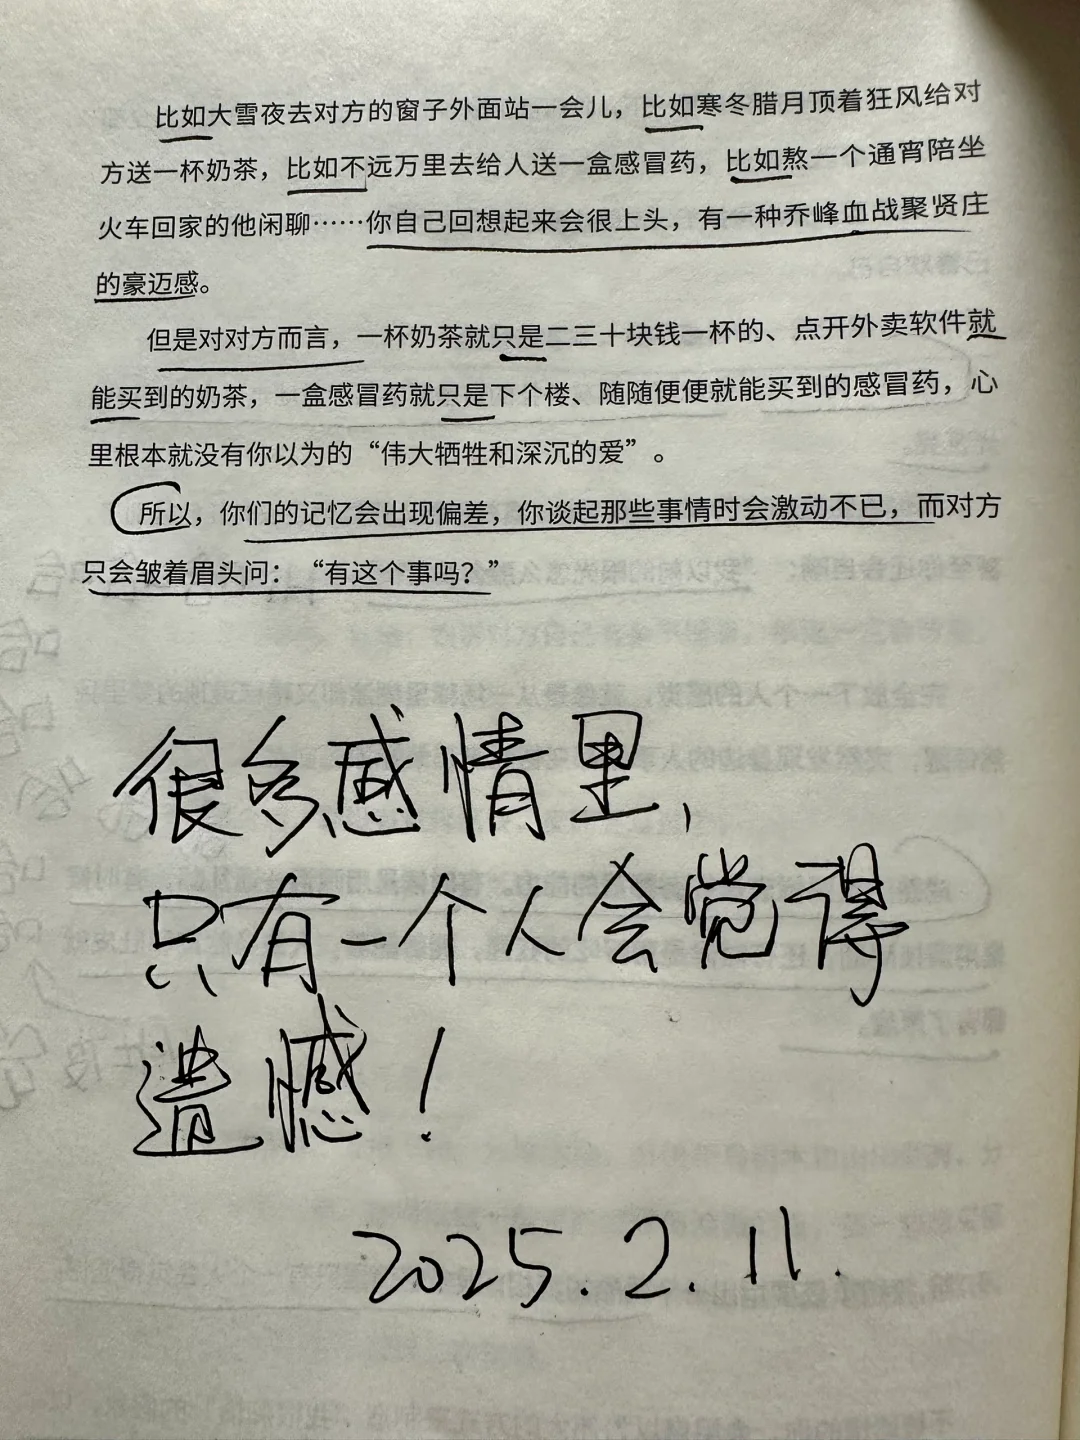 比如大雪夜去对方的窗子外面站一会儿，比如寒冬腊月顶着狂风给对
方送一杯奶茶，比如不远万里去给人送一盒感冒药，比如熬一个通宵陪坐
火车回家的他闲聊……你自己回想起来会很上头，有一种乔峰血战聚贤庄
的豪迈感。
但是对对方而言，一杯奶茶就只是二三十块钱一杯的、点开外卖软件就
能买到的奶茶，一盒感冒药就只是下个楼、随随便便就能买到的感冒药，心
里根本就没有你以为的“伟大牺牲和深沉的爱”。
所以，你们的记忆会出现偏差，你谈起那些事情时会激动不已，而对方
只会皱着眉头问：“有这个事吗？”
很多感情里，
只有一个人会觉得
遗憾！
2025.2.11.